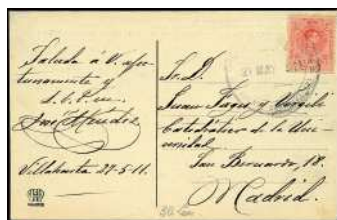 Saluda á V. afec-
tuosamente y
S. S. S.
José Méndez
Villaharta 27-5-11.
Sr. D.
Juan Fages y Virgili
Catedrático de la Uni-
versidad
San Bernardo, 18.
Madrid.